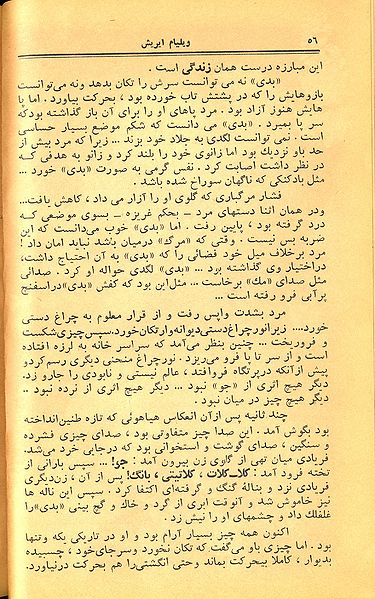 ۵۶
ویلیام ایریش
این مبارزه درست همان زندگی است .
«بدی» نه می توانست سرش را تکان بدهد ونه می‌توانست
بازوهایش را که در پشتش تاب خورده بود ، بحرکت بیاورد . اما پا
هایش هنوز آزاد بود . مرد پاهای او را برای آن باز گذاشته بودکه
سر پا بمیرد . «بدی» می دانست که شکم موضع بسیار حساسی
است . نمی توانست لگدی به جلاد خود بزند ... زیرا که مرد بیش از
حد باو نزدیك بود اما زانوی خود را بلند کرد و زانو به هدفی که
در نظر داشت اصابت کرد . نفس گرمی به صورت «بدی» خورد ...
مثل بادکنکی که ناگهان سوراخ شده باشد .
فشار مرگباری که گلوی او را آزار می داد ، کاهش یافت...
ودر همان اثنا دستهای مرد - بحکم غریزه - بسوی موضعی که
درد گرفته بود ، پایین رفت . اما «بدی» خوب می‌دانست که این
ضربه بس نیست . وقتی که «مرگ» درمیان باشد نباید امان داد !
مرد برخلاف میل خود فضائی را که «بدی» به آن احتیاج داشت،
دراختیار وی گذاشته بود ... «بدی» لگدی حواله او کرد . صدائی
مثل صدای «مك» برخاست ... مثل‌این بود که کفش «بدی» دراسفنج
پرآبی فرو رفته است ...
مرد بشدت واپس رفت و از قرار معلوم به چراغ دستی
خورد.... زیرانورچراغ‌دستی‌دیوانه‌وارتکان‌خورد.سپس‌چیزی‌شکست
و فروریخت ... چنین بنظر می‌آمد که سراسر خانه به لرزه افتاده
است و از سر تا پا فرو می‌ریزد . نورچراغ منحنی دیگری رسم‌کردو
پیش ازآنکه درپرتگاه فروافتد ، عالم نیستی و نابودی را جارو زد.
دیگر هیچ اثری از «جو» نبود ... دیگر هیچ اثری از نرده نبود .
دیگر هیچ چیز در میان نبود .
چند ثانیه پس ازآن انعکاس هیاهوئی که تازه طنین‌انداخته
بود بگوش آمد . این صدا چیز متفاوتی بود ، صدای چیزی فشرده
و سنگین ، صدای گوشت و استخوانی بود که درجایی خرد می‌شد.
فریادی میان تهی از گلوی زن بیرون آمد : جو! ... سپس بارانی از
تخته فرود آمد : کلاـ‌کلات ، کلاتیتی ، بانگ! پس از آن ، زن‌دیگری
فریادی نزد و بنالهٔ گنگ و گرفته‌ای اکتفا کرد . سپس این ناله ها
نیز خاموش شد و آنوقت ابری از گرد و خاك و گچ بینی «بدی» را
غلغلك داد و چشمهای او را نیش زد .
اکنون همه چیز بسیار آرام بود و او در تاریکی یکه وتنها
بود . اما چیزی باو می‌گفت که تکان نخورد وسرجای‌خود ، چسبیده
بدیوار ، کاملا بیحرکت بماند وحتی انگشتی‌را هم بحرکت درنیاورد.